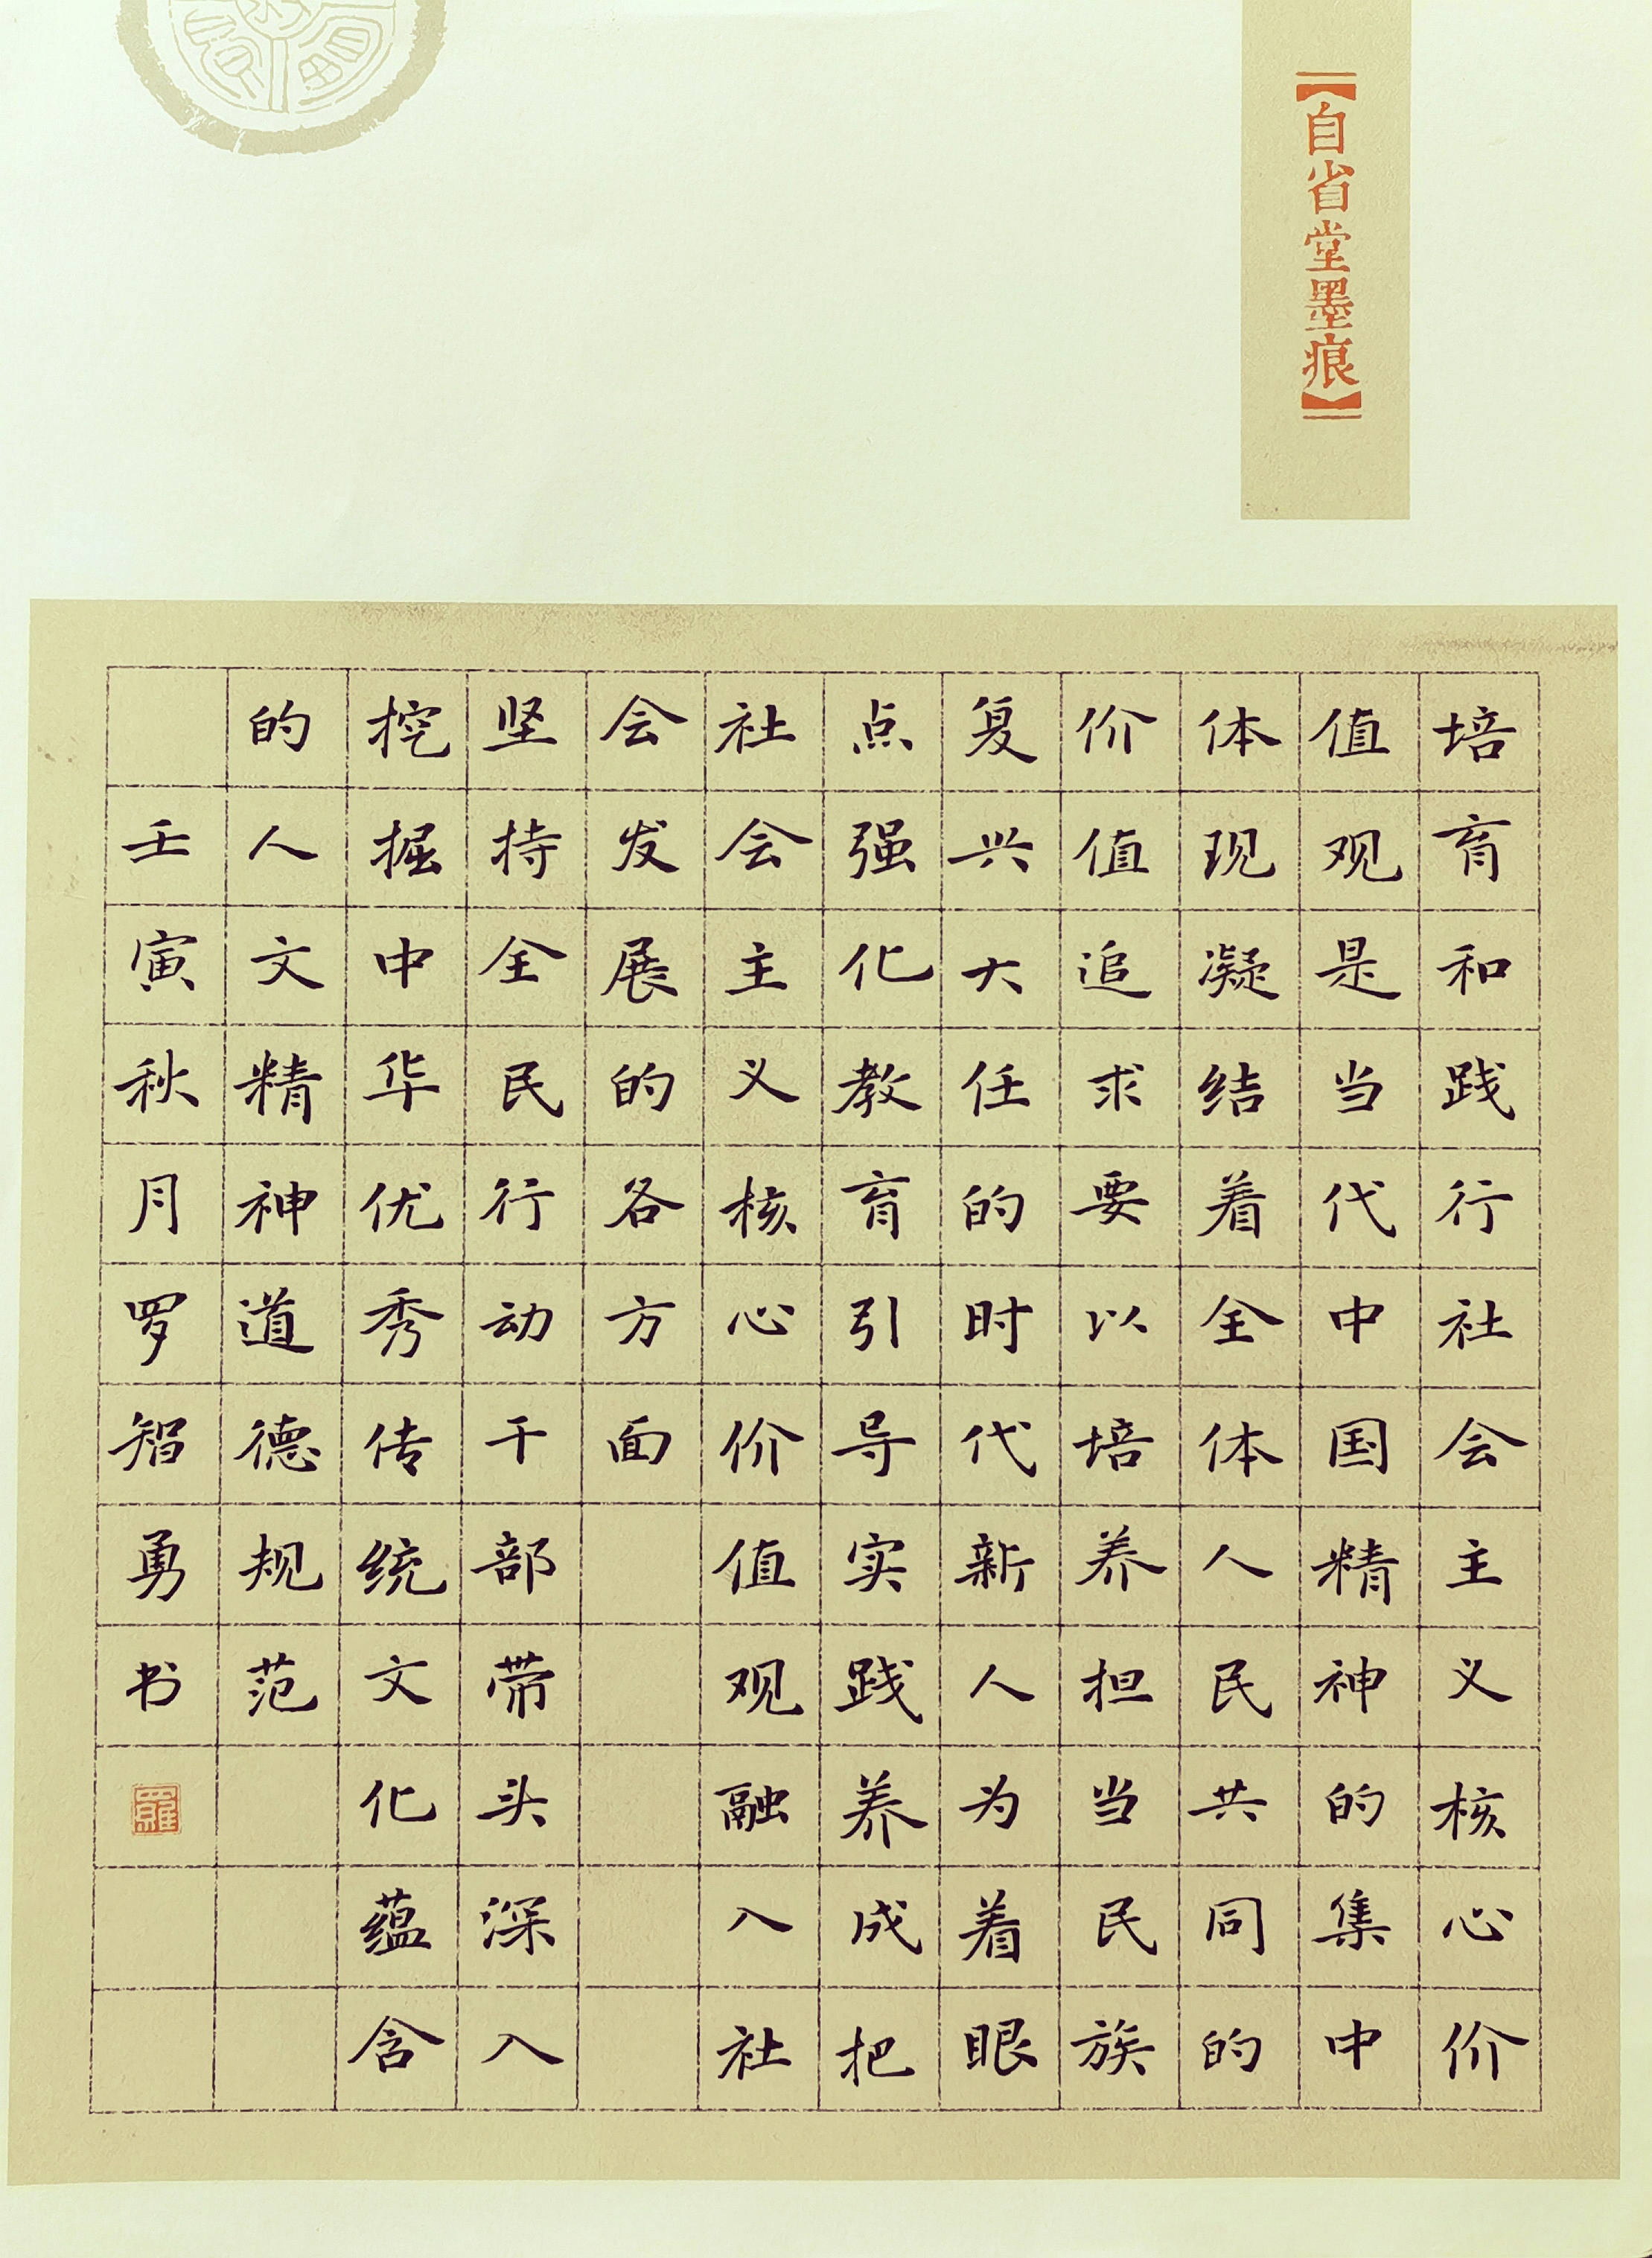 【自省堂墨痕】
培育和践行社会主义核心价
值观是当代中国精神的集中
体现凝结着全体人民共同的
价值追求要以培养担当民族
复兴大任的时代新人为着眼
点强化教育引导实践养成把
社会主义核心价值观融入社
会发展的各方面
坚持全民行动干部带头深入
挖掘中华优秀传统文化蕴含
的人文精神道德规范
壬寅秋月罗智勇书
羅